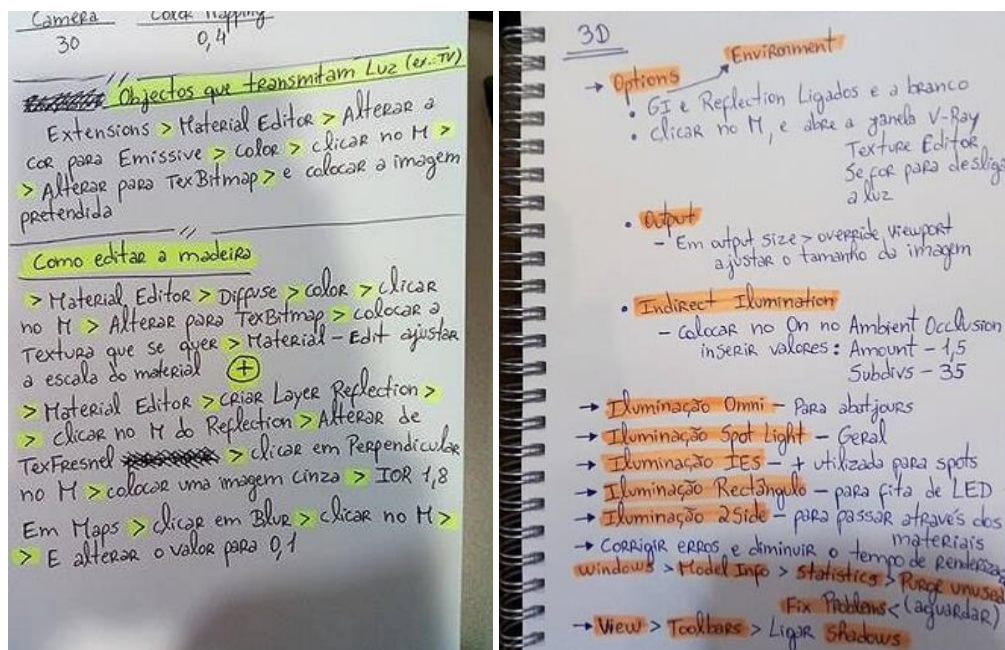 Camera Color Mapping
30 0,4
Objectos que transmitam Luz (ex.: TV)
Extensions > Material Editor > Alterar a
cor para Emissive > color > clicar no M >
> Alterar para TexBitmap > e colocar a imagem
pretendida
Como editar a madeira
> Material Editor > Diffuse > color > clicar
no M > Alterar para TexBitmap > colocar a
Textura que se quer > Material - Edit ajustar
a escala do material +
> Material Editor > criar Layer Reflection >
> clicar no M do Reflection > Alterar de
TexFresnel > clicar em Perpendicular
no M > colocar uma imagem cinza > IOR 1,8
Em Maps > clicar em Blur > clicar no M >
> E alterar o valor para 0,1
3D
Environment
→ Options
• GI e Reflection Ligados e a branco
• clicar no M, e abre a janela V-Ray
Texture Editor
Se for para desliga
a luz
• Output
- Em output size > override viewport
ajustar o tamanho da imagem
• Indirect Ilumination
- colocar no On no Ambient Occlusion
inserir valores: Amount - 1,5
Subdivs - 35
→ Iluminação Omni - Para abatjours
→ Iluminação Spot Light - Geral
→ Iluminação IES - + utilizada para spots
→ Iluminação Rectângulo - para fita de LED
→ Iluminação 2Side - para passar através dos
materiais
→ Corrigir erros e diminuir o tempo de renderizaç
Windows > Model Info > Statistics > Purge unused
Fix Problems < (aguardar)
→ View > Toolbars > Ligar shadows